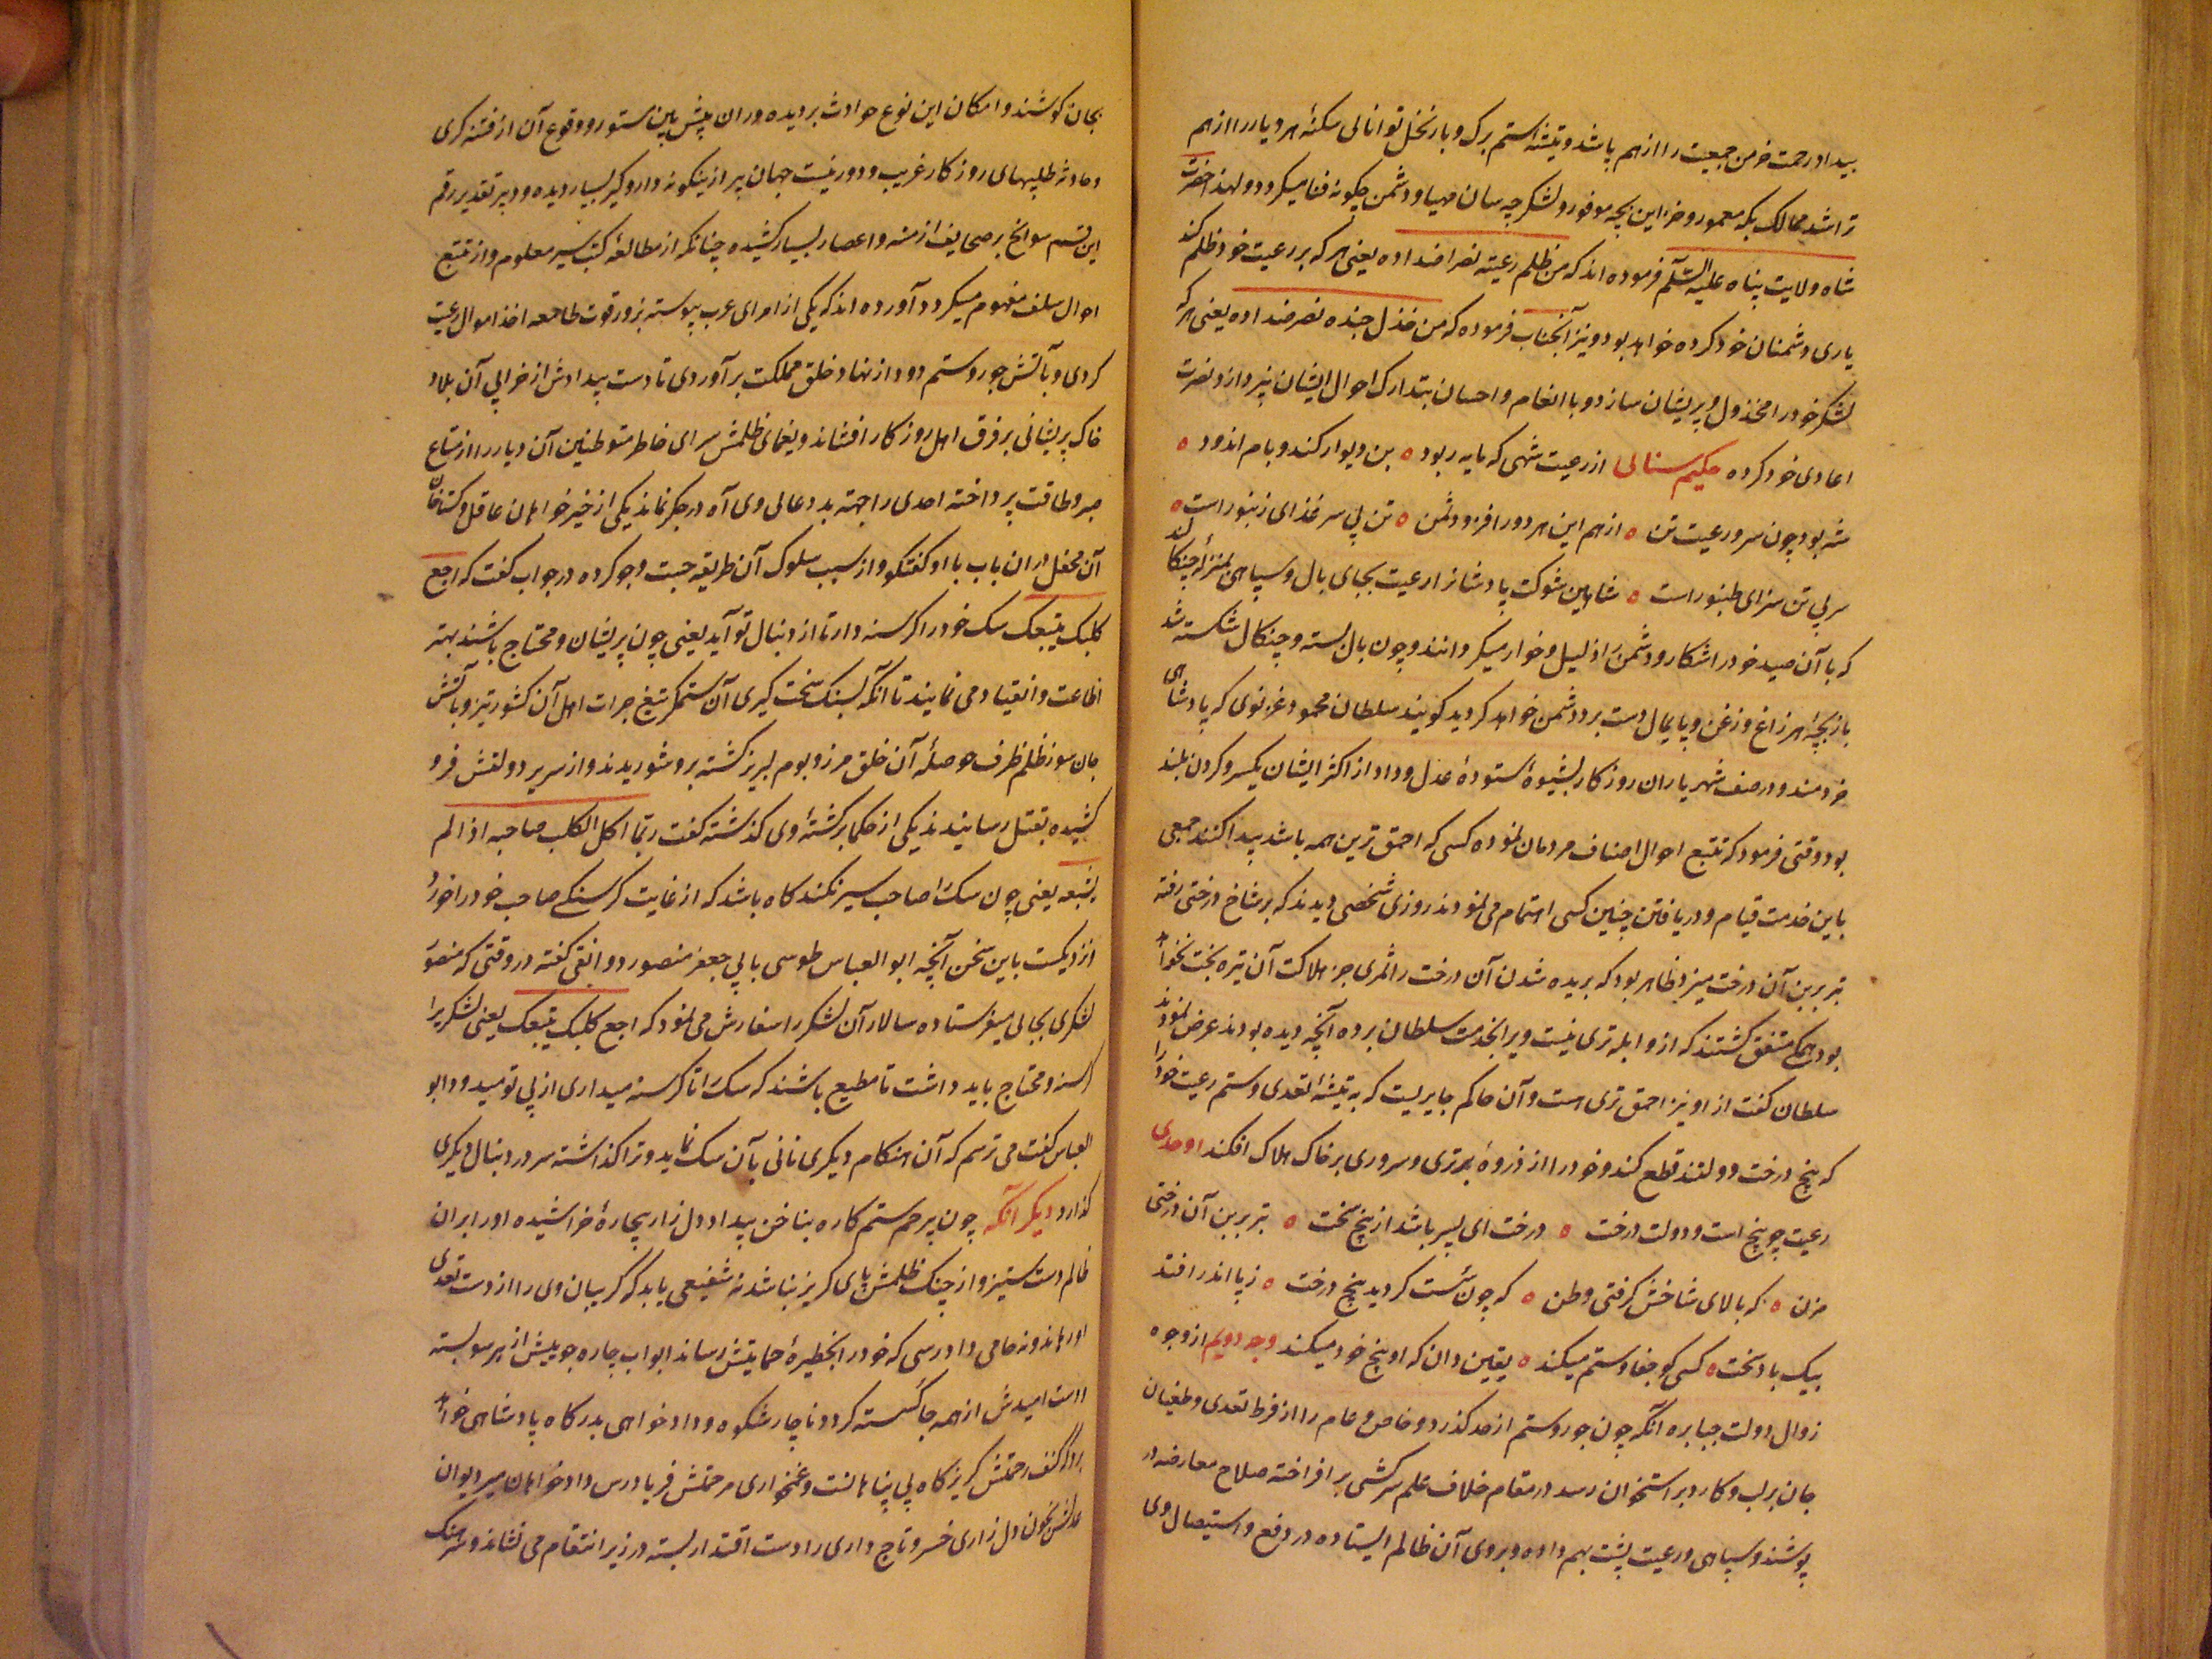 بیداد رحمت خرمن جمعیت را از هم پاشد و تیشهٔ ستم برک و بار نخل توانائی سکنهٔ هر دیار را از هم
تراشد ممالک بکه معمور و خزاین بچه موفور و لشکر چه سان مهیا و دشمن چکونه فنا میکردد و لهذا حضرت
شاه ولایت پناه علیه السّلم فرموده اند که من ظلم رعیته نصر اضداده یعنی هر که بر رعیت خود ظلم کند
یاری دشمنان خود کرده خواهد بود و نیز آنجناب فرموده که من خذل جنده نصر ضداده یعنی هر که
لشکر خود را مخذول و پریشان سازد و با انعام و احسان بتدارک احوال ایشان نپردازد نصرت
اعادی خود کرده حکیم سنائی از رعیت شهی که مایه ربود ه بن دیوار کند و بام اندود ه
شه بود چون سر و رعیت تن ه از هم این هر دو را فزود ثمن ه تن بی سر غذای زنبور است ه
سر بی تن سزای طنبور است ه شاهین شوکت پادشاهانرا رعیت بجای بال و سپاهی بمنزلهٔ چنکالند
که با آن صید خود را شکار و دشمن را ذلیل و خوار میکردانند و چون بال بسته و چنکال شکسته شد
بازیچهٔ هر زاغ و زغن و پایمال دست برد دشمن خواهد کردید کویند سلطان محمود غزنوی که پادشاهی
خردمند و در صنف شهریاران روزکار بشیوهٔ ستودهٔ عدل و داد از اکثر ایشان یکسر و کردن بلند
بود وقتی فرمود که تتبع احوال اصناف مردمان نموده کسی که احمق ترین همه باشد پیدا کنند جمعی
باین خدمت قیام و در یافتن چنین کسی اهتمام می نمودند روزی شخصی دیدند که بر شاخ درختی رفته
تبر بر بن آن درخت میزد ظاهر بود که بریده شدن آن درخت را ثمری جز هلاکت آن تیره بخت نخواهد
بود همکی متفق کشتند که از و ابله تری نیست ویرا بخدمت سلطان برده آنچه دیده بودند عرض نمودند
سلطان کفت از او نیز احمق تری هست و آن حاکم جابریست که به تیشهٔ تعدی و ستم رعیت خود را
که بیخ درخت دولتند قطع کند و خود را از ذروهٔ برتری و سروری بر خاک هلاک افکند اوحدی
رعیت چو بیخ است و دولت درخت ه درخت ای پسر باشد از بیخ سخت ه تبر بر بن آن درختی
مزن ه که بالای شاخش کرفتی وطن ه که چون سُست کردید بیخ درخت ه ز پا اندر افتد
بیک باد سخت ه کسی کو جفا و ستم میکند ه یقین دان که او بیخ خود میکند وجه دویم از وجوه
زوال دولت جبابره آنکه چون جور و ستم از حد کذرد و خاص و عام را از فرط تعدی و طغیان
جان بر لب و کارد بر استخوان رسد در مقام خلاف علم سرکشی بر افراخته صلاح معارضه در
پوشند و سپاهی و رعیت پشت بهم داده و بروی آن ظالم ایستاده در دفع و استیصال وی
بجان کوشند و امکان این نوع حوادث بر دیده وران پیش بین مستور و وقوع آن از فتنه کری
و حادثه طلبیهای روزکار غریب و دور نیست جهان پیر ازینکونه دار و کیر بسیار دیده و دبیر تقدیر رقم
این قسم سوانح بر صحایف ازمنه و اعصار بسیار کشیده چنانکه از مطالعهٔ کتب سیر معلوم و از تتبع
احوال سلف مفهوم میکردد آورده اند که یکی از امرای عرب پیوسته بزور قوت طامعه اخذ اموال رعیت
کردی و بآتش جور و ستم دود از نهاد خلق مملکت بر آوردی تا دست بیدادش از خرابی آن بلاد
خاک پریشانی بر فرق اهل روزکار افشاند و یغمای ظلمش سرای خاطر متوطنین آن دیار را از متاع
صبر و طاقت پرداخته احدی را جهته بد دعائی وی آه در جکر نماند یکی از خیر خواهان عاقل و کستاخان
آن محفل در ان باب با او کفتکو و از سبب سلوک آن طریقه جست و جو کرده در جواب کفت که اجع
کلبک یتبعک سک خود را کرسنه دار تا از دنبال تو آید یعنی چون پریشان و محتاج باشند بهتر
اطاعت و انقیاد می نمایند تا آنکه بسنک سخت کیری آن ستمکر تیغ جرات اهل آن کشور تیز و بآتش
جان سوز ظلم ظرف حوصلهٔ آن خلق مرز و بوم لبریز کشته بر و شوریدند و از سریر دولتش فرو
کشیده بقتل رسانیدند یکی از حکما بر کشتهٔ وی کذشته کفت ربّما اکل الکلب صاحبه اذا لم
یشبعه یعنی چون سک را صاحب سیر نکند کاه باشد که از غایت کرسنکی صاحب خود را خورد
نزدیکست باین سخن آنچه ابو العباس طوسی با بی جعفر منصور دوانقی کفته در وقتی که منصور
لشکری بجائی میفرستاده سالار آن لشکر را سفارش می نمود که اجع کلبک یتبعک یعنی لشکریرا
کرسنه و محتاج باید داشت تا مطیع باشند که سک را تا کرسنه میداری از پی تو میدود ابو
العباس کفت می ترسم که آن هنکام دیکری نانی بآن سک نماید و ترا کذاشته سر در دنبال دیکری
کذارد دیکر آنکه چون بیرحم ستم کاره بناخن بیداد دل زار بیچارهٔ خراشیده اورا بر ان
ظالم دست ستیز و از چنک ظلمش پای کریز نباشد نه شفیعی یابد که کریبان وی را از دست تعدی
او رهاند و نه حامی و دادرسی که خود را بحظیرهٔ حمایتش رساند ابواب چاره جوییش از هر سو بسته
است امیدش از همه جا کسسته کردد ناچار شکوه و داد خواهی بدرکاه پادشاهی خواهد
برد که کنف رحمتش کریزکاه بی پناهانست و غمخواری مرحمتش فریادرس دادخواهان میر دیوان
عدلش بخون دل زاری خسرو تاج داری را دست اقتدار بسته در زیر انتقام می نشاند و سرهنک